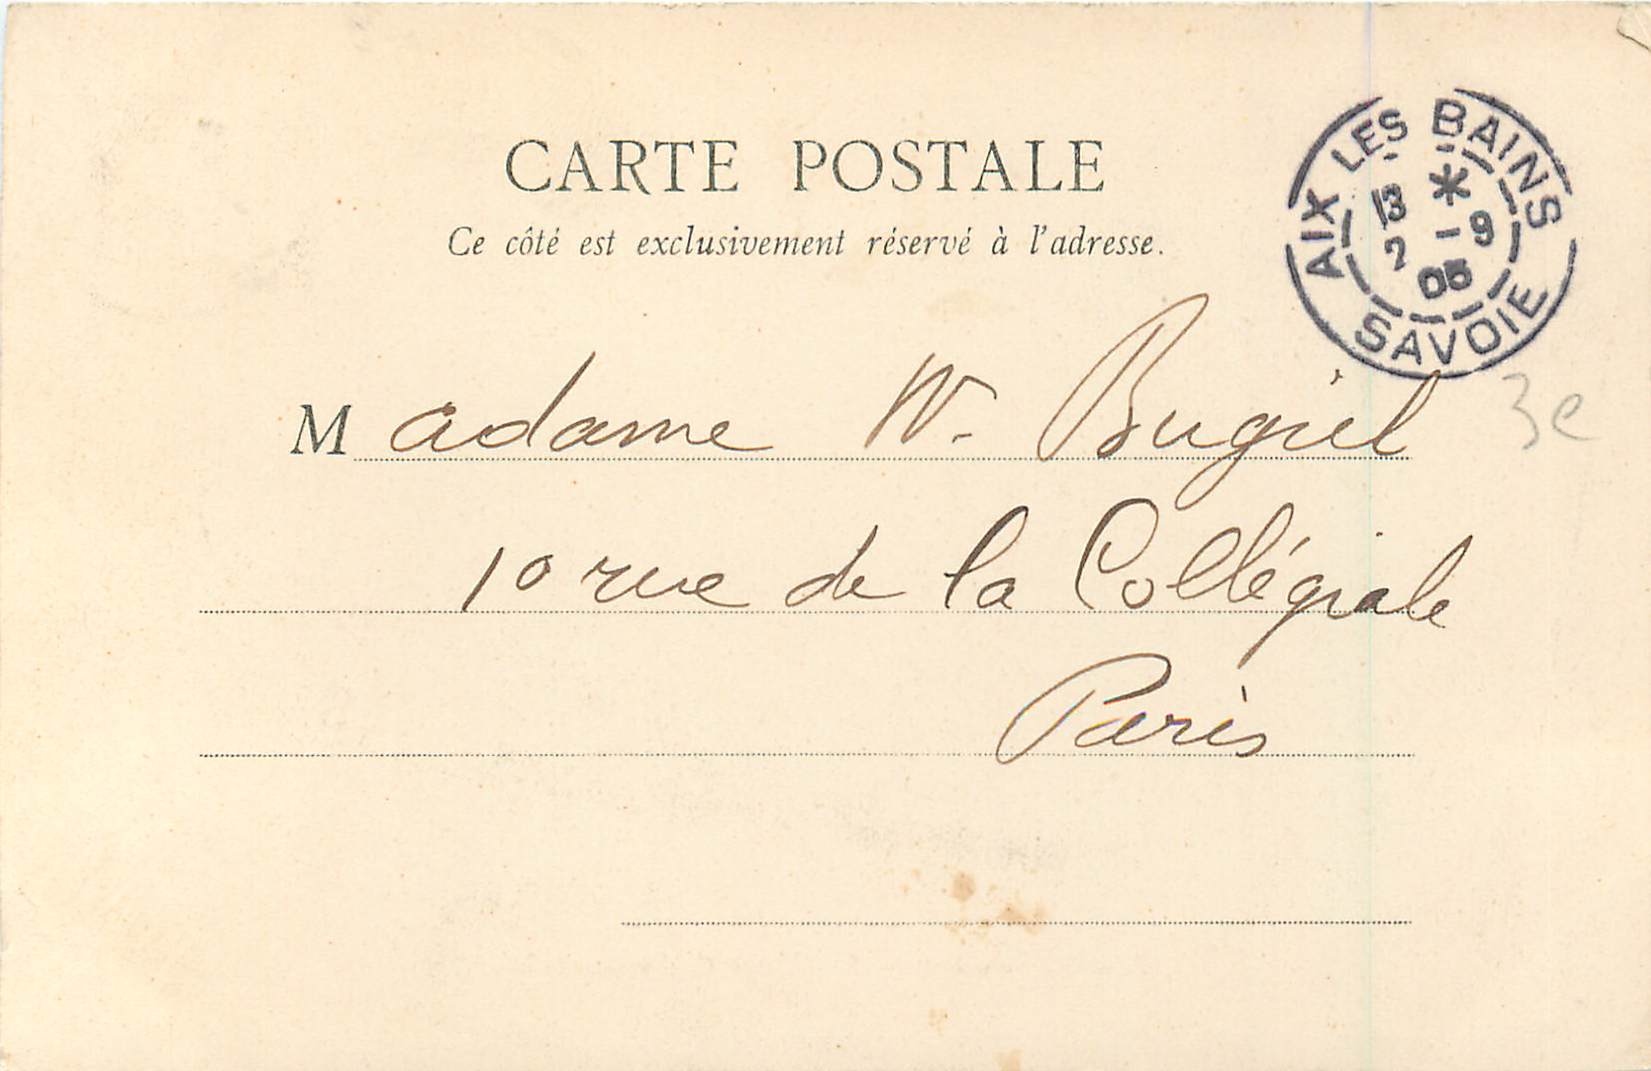 CARTE POSTALE
Ce côté est exclusivement réservé à l'adresse.
AIX LES BAINS
13 *
2 - 9
05
SAVOIE
Madame W. Bugiel
10 rue de la Collégiale
Paris
3e